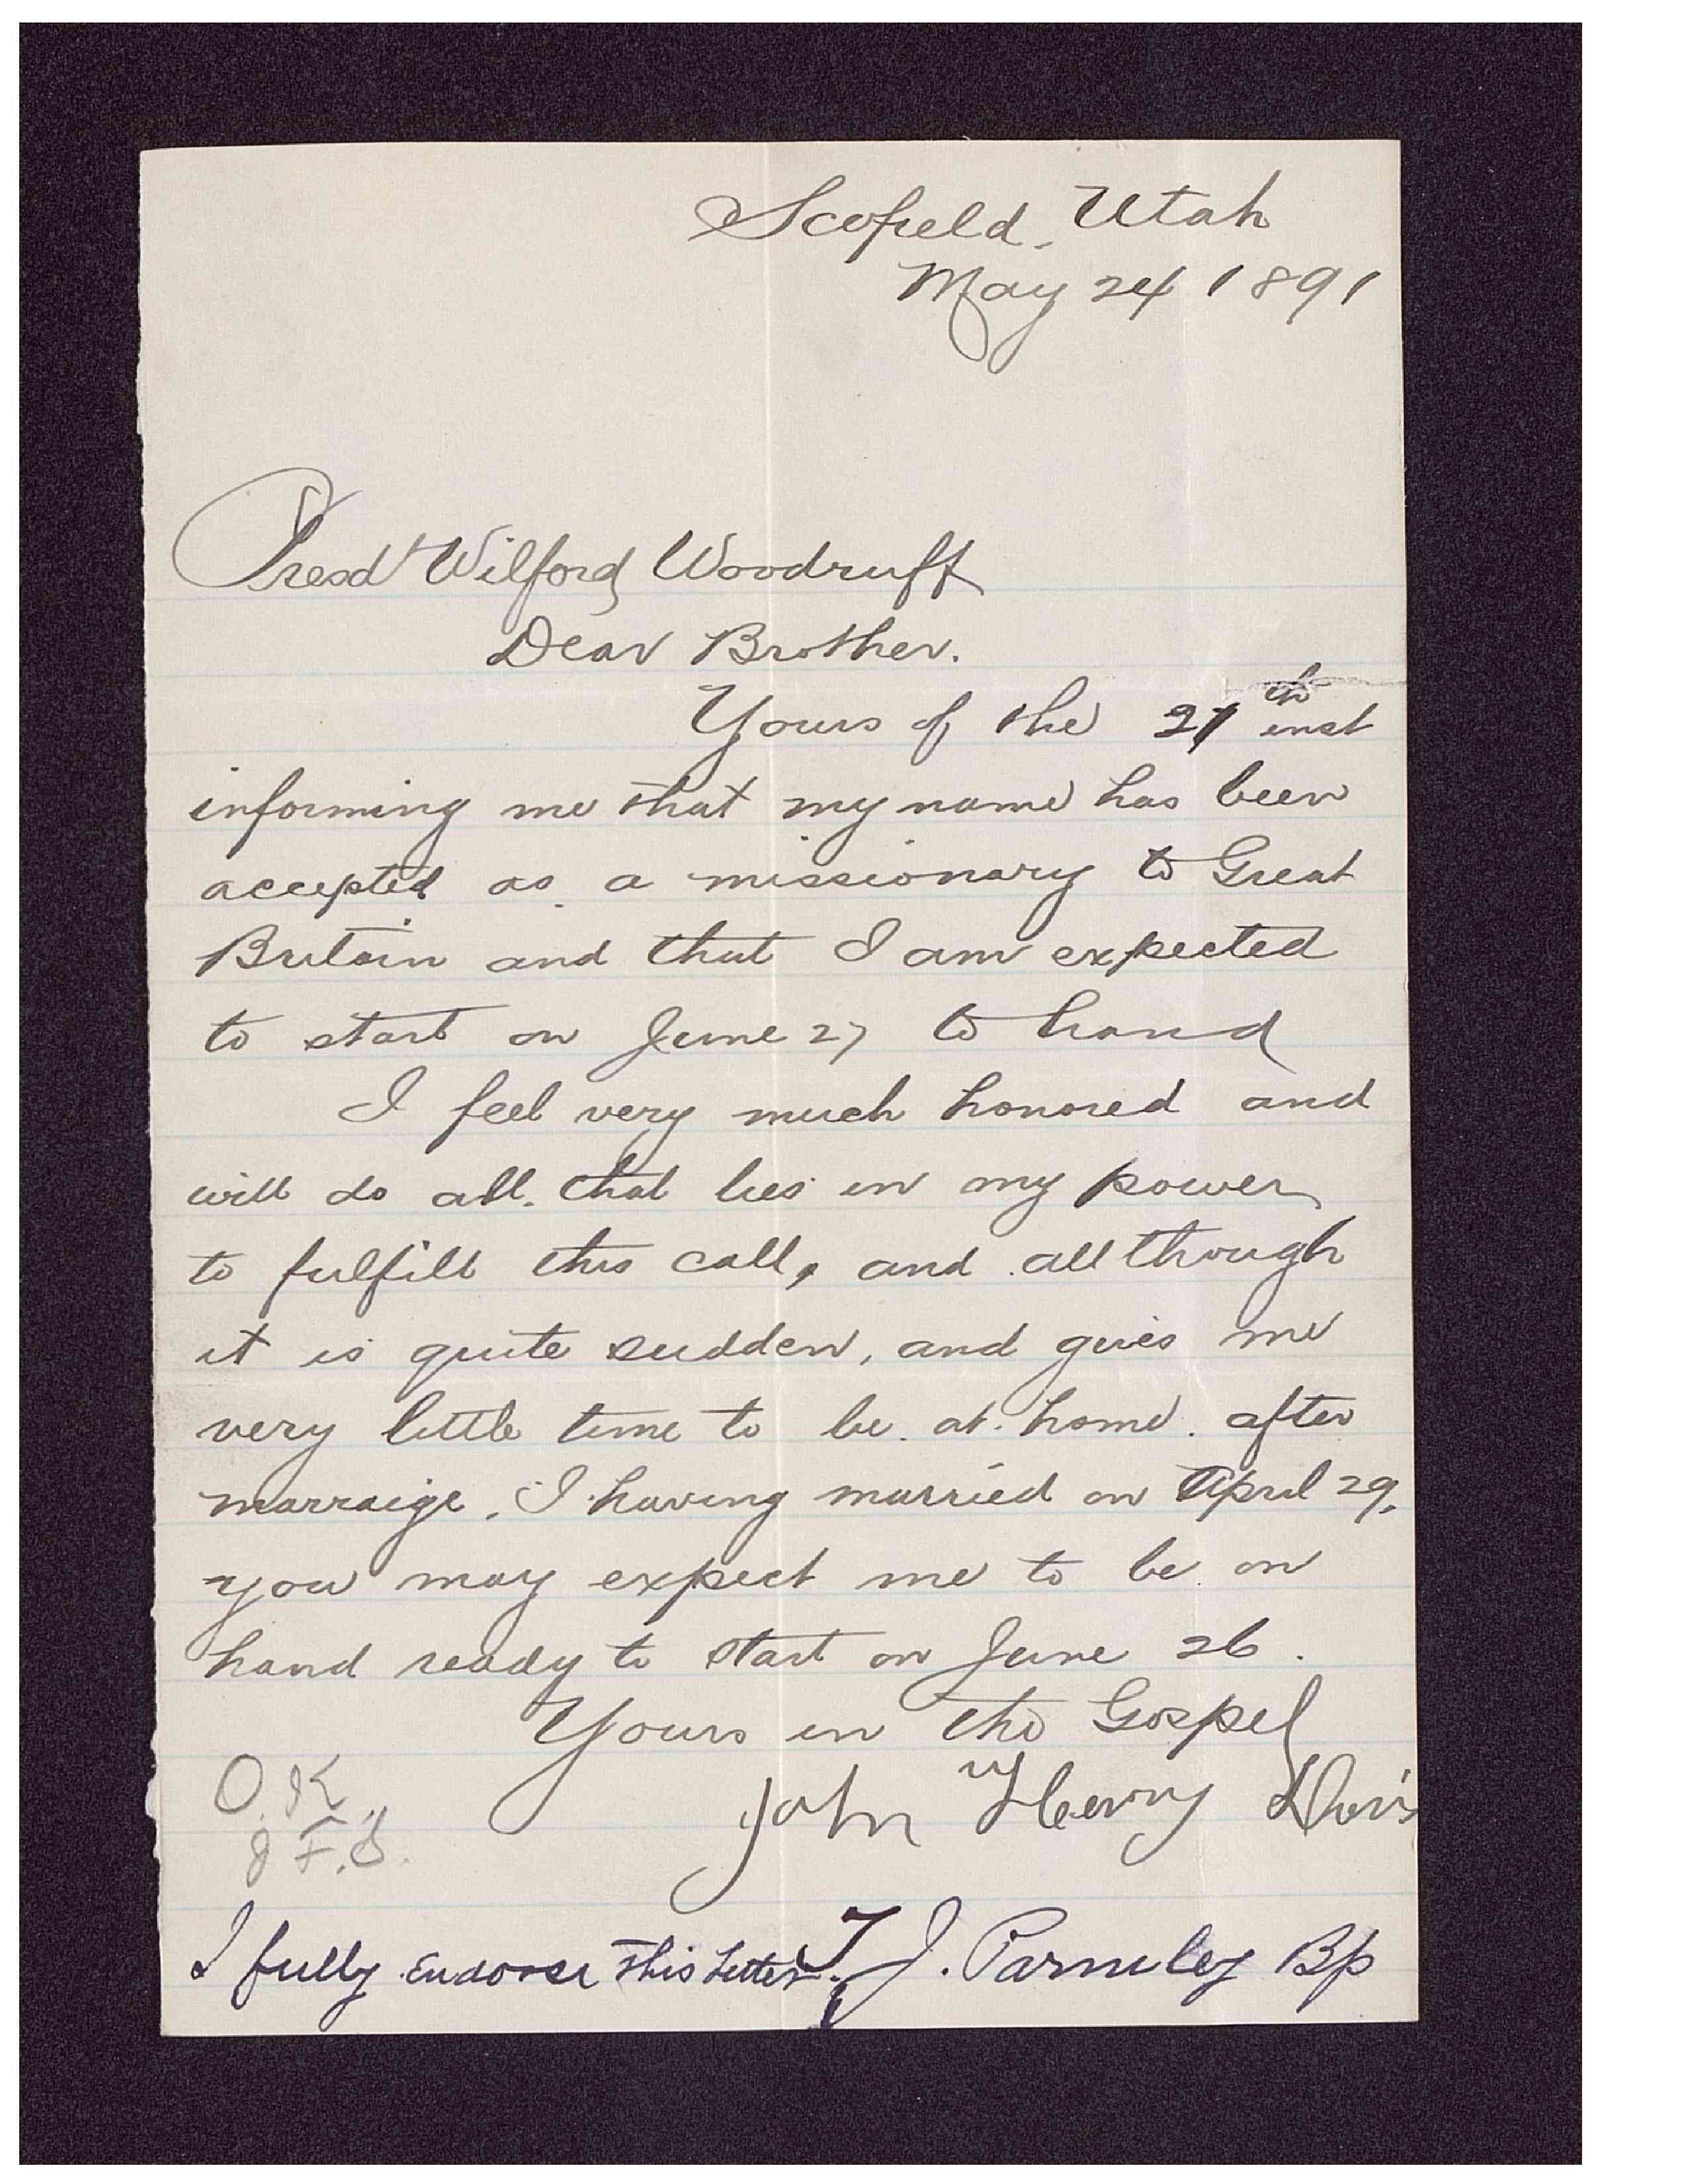 Scofield, Utah
May 24 1891
Presdt Wilford Woodruff
Dear Brother.
Yours of the 21th inst
informing me that my name has been
accepted as a missionary to Great
Britain and that I am expected
to start on June 27 to hand
I feel very much honored and
will do all that lies in my power
to fulfill this call, and allthough
it is quite sudden, and gives me
very little time to be at home after
marraige, I having married on April 29,
you may expect me to be on
hand ready to start on June 26.
Yours in the Gospel
John Henry Davis
O.K.
J. F. S.
I fully Endorse this Letter. T. J. Parmley Bp